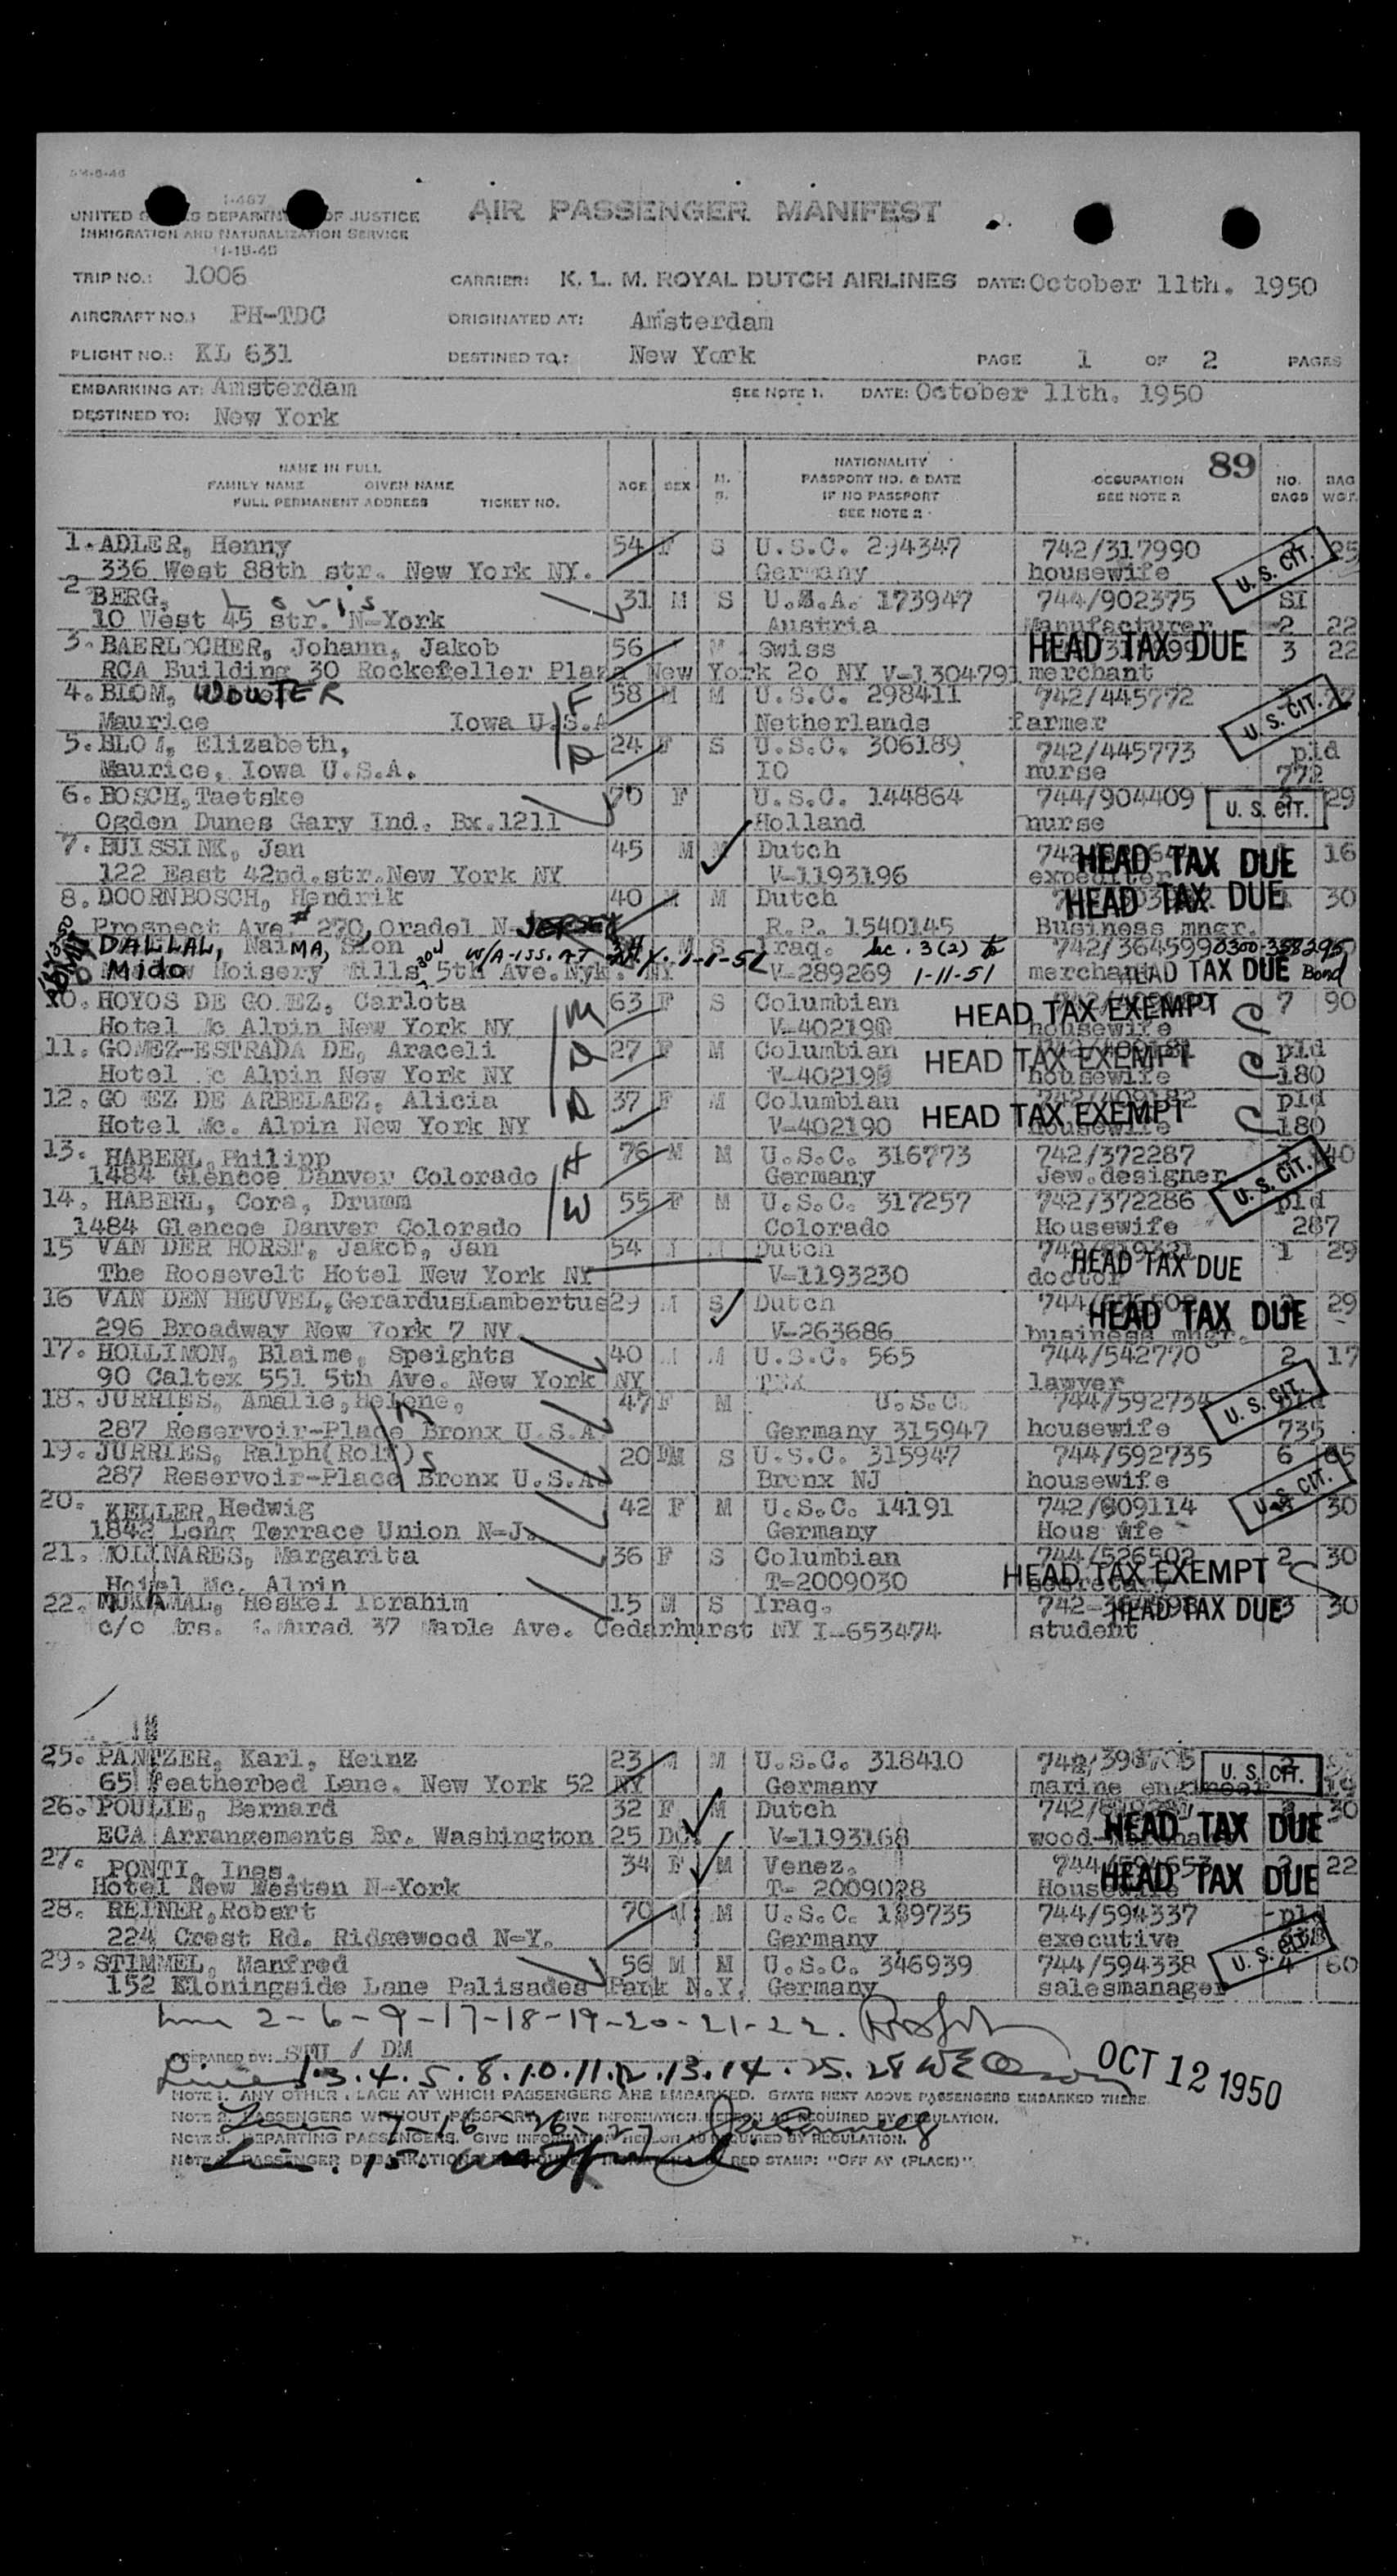 I-467
UNITED DEPARTM OF JUSTICE
IMMIGRATION AND NATURALIZATION SERVICE
AIR PASSENGER MANIFEST
TRIP NO.: 1006 CARRIER: K. L. M. ROYAL DUTCH AIRLINES DATE: October 11th. 1950
AIRCRAFT NO.: PH-TDC ORIGINATED AT: Amsterdam
FLIGHT NO.: KL 631 DESTINED TO: New York PAGE 1 OF 2 PAGES
EMBARKING AT: Amsterdam SEE NOTE 1. DATE: October 11th. 1950
DESTINED TO: New York
NAME IN FULL
FAMILY NAME GIVEN NAME
FULL PERMANENT ADDRESS TICKET NO.
AGE SEX M. S.
NATIONALITY
PASSPORT NO. & DATE
IF NO PASSPORT
SEE NOTE 2
OCCUPATION
SEE NOTE 2
89
NO. BAGS
BAG WGT.
1. ADLER, Henny 54 F S U.S.C. 294347 742/317990 U. S. CIT. 25
336 West 88th str. New York NY. Germany housewife
2 BERG, 31 M S U.S.A. 173947 744/902375
10 West 45 str. N-York Austria Manufacturer 2 22
3. BAERLOCHER, Johann, Jakob 56 M Swiss HEAD TAX DUE 3 22
RCA Building 30 Rockefeller Plaza New York 20 NY V-1304791 merchant
4. BLOM, WOUTER 58 M M U.S.C. 298411 742/445772 U. S. CIT.
Maurice Iowa U.S.A Netherlands farmer
5. BLOM, Elizabeth, 24 F S U.S.C. 306189 742/445773 pld
Maurice, Iowa U.S.A. IO nurse 772
6. BOSCH, Taetske 70 F U.S.C. 144864 744/904409 U. S. CIT. 29
Ogden Dunes Gary Ind. Bx.1211 Holland nurse
7. BUISSINK, Jan 45 M M Dutch HEAD TAX DUE 16
122 East 42nd.str.New York NY V-1193196 expediter
8. DOORNBOSCH, Hendrik 40 M M Dutch HEAD TAX DUE 30
Prospect Ave. # 270, Oradel N-JERSEY R.P. 1540145 Business mngr.
DALLAL, NaiMA, Sion M S Iraq. Sec. 3(2) to 742/364599 0300-358295
Mido Hoisery Mills 304 5th Ave. Nyk. NY W/A-ISS. AT N.Y. V-289269 1-11-51 merchant HEAD TAX DUE Bond
10. HOYOS DE GOMEZ, Carlota 63 F S Columbian HEAD TAX EXEMPT 7 90
Hotel Mc Alpin New York NY housewife
11. GOMEZ-ESTRADA DE, Araceli 27 F M Columbian HEAD TAX EXEMPT pld
Hotel Mc Alpin New York NY housewife 180
12. GOMEZ DE ARBELAEZ, Alicia 37 F M Columbian HEAD TAX EXEMPT pld
Hotel Mc. Alpin New York NY V-402190 housewife 180
13. HABERL, Philipp 76 M M U.S.C. 316773 742/372287 40
1484 Glencoe Danver Colorado Germany Jew.designer U. S. CIT.
14. HABERL, Cora, Drumm 55 F M U.S.C. 317257 742/372286 pld
1484 Glencoe Danver Colorado Colorado Housewife 287
15 VAN DER HORST, Jakob, Jan 54 Dutch HEAD TAX DUE 1 29
The Roosevelt Hotel New York NY V-1193230 doctor
16 VAN DEN HEUVEL, GerardusLambertus 29 M S Dutch HEAD TAX DUE 29
296 Broadway New York 7 NY V-263686 business mngr.
17. HOLLIMON, Blaime, Speights 40 M M U.S.C. 565 744/542770 2 17
90 Caltex 551 5th Ave. New York NY TEX lawyer
18. JURRIES, Amalie, Helene, 47 F M U.S.C. 744/592734 U. S. CIT. pld
287 Reservoir-Place Bronx U.S.A. Germany 315947 housewife 735
19. JURRIES, Ralph(Rolf) 20 M S U.S.C. 315947 744/592735 6 65
287 Reservoir-Place Bronx U.S.A. Bronx NJ housewife
20. KELLER, Hedwig 42 F M U.S.C. 14191 742/609114 U.S. CIT. 30
1842 Long Terrace Union N-J. Germany Hous wfe
21. MOLINARES, Margarita 36 F S Columbian 744/526502 2 30
Hotel Mc. Alpin T-2009030 secretary HEAD TAX EXEMPT
22. MUKAMAL, Heskel Ibrahim 15 M S Iraq. HEAD TAX DUE 3 30
c/o Mrs. Murad 37 Maple Ave. Cedarhurst NY I-653474 student
25. PANTZER, Karl, Heinz 23 M M U.S.C. 318410 U. S. CIT.
65 Featherbed Lane. New York 52 NY Germany marine engineer 19
26. POULIE, Bernard 32 F M Dutch HEAD TAX DUE 30
ECA Arrangements Br. Washington 25 DC. V-1193168
27. PONTI, Ines, 34 F M Venez. HEAD TAX DUE 22
Hotel New Westen N-York T- 2009028 Housewife
28. REINER, Robert 70 M M U.S.C. 189735 744/594337 pld
224 Crest Rd. Ridgewood N-Y. Germany executive U. S. CIT.
29. STIMMEL, Manfred 56 M M U.S.C. 346939 744/594338 4 60
152 Kloningside Lane Palisades Park N.Y. Germany salesmanager
2-6-9-17-18-19-20-21-22.
PREPARED BY: / DM
Lines 1.3.4.5.8.10.11.12.13.14.25.28
OCT 12 1950
NOTE 1. ANY OTHER PLACE AT WHICH PASSENGERS ARE EMBARKED. STATE NEXT ABOVE PASSENGERS EMBARKED THERE.
NOTE 2. PASSENGERS WITHOUT PASSPORT, GIVE INFORMATION HEREON AS REQUIRED BY REGULATION.
7-16-26-27
NOTE 3. DEPARTING PASSENGERS. GIVE INFORMATION HEREON AS REQUIRED BY REGULATION.
NOTE 4. PASSENGER DEBARKATION RED STAMP: "OFF AT (PLACE)".
15.